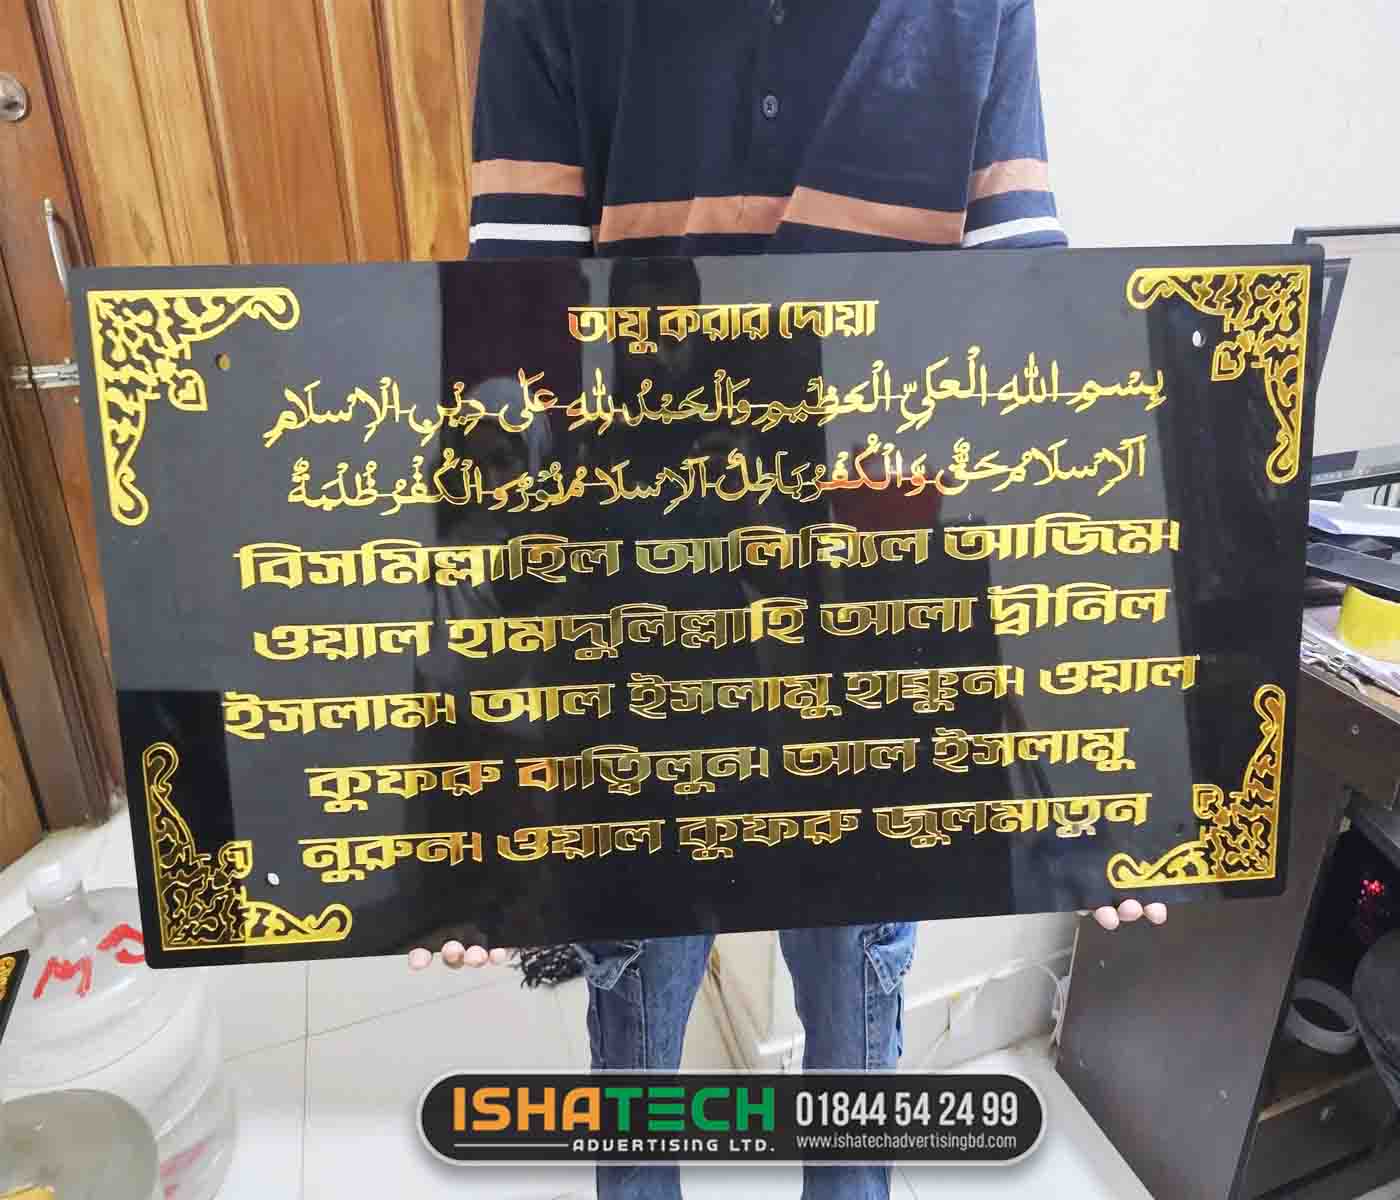 অযু করার দোয়া
بِسْمِ اللهِ الْعَلِيِّ الْعَظِيْمِ وَالْحَمْدُ لِلّٰهِ عَلٰى دِيْنِ الْاِسْلَامِ
اَلْاِسْلَامُ حَقٌّ وَّالْكُفْرُ بَاطِلٌ اَلْاِسْلَامُ نُوْرٌ وَّالْكُفْرُ ظُلْمَةٌ
বিসমিল্লাহিল আলিয়্যিল আজিম।
ওয়াল হামদুলিল্লাহি আলা দ্বীনিল
ইসলাম। আল ইসলামু হাক্কুন। ওয়াল
কুফরু বাত্বিলুন। আল ইসলামু
নুরুন। ওয়াল কুফরু জুলমাতুন
ISHATECH
ADVERTISING LTD.
01844 54 24 99
www.ishatechadvertisingbd.com